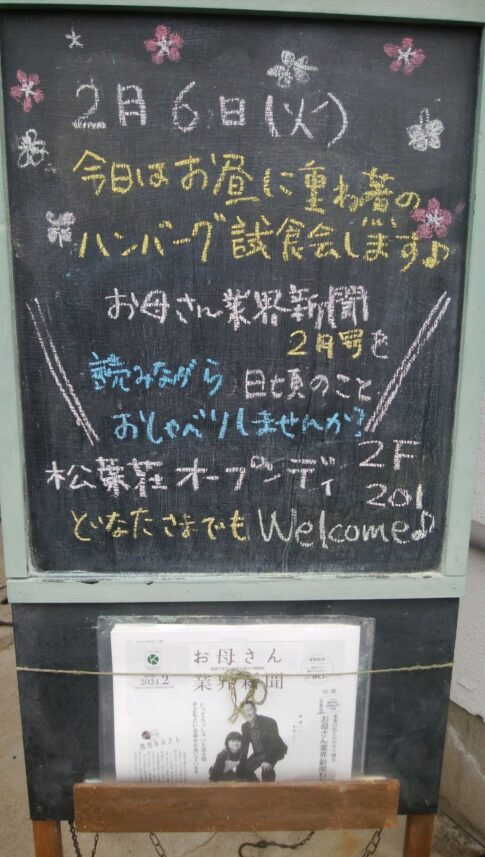 2月6日(火)
今日はお昼に重ね煮の
ハンバーグ試食会します♪
お母さん業界新聞
2月号を
読みながら 日頃のこと
おしゃべりしませんか?
松葉荘オープンディ 2F
201
どなたさまでもWelcome♪
お母さん
業界新聞
2024.2